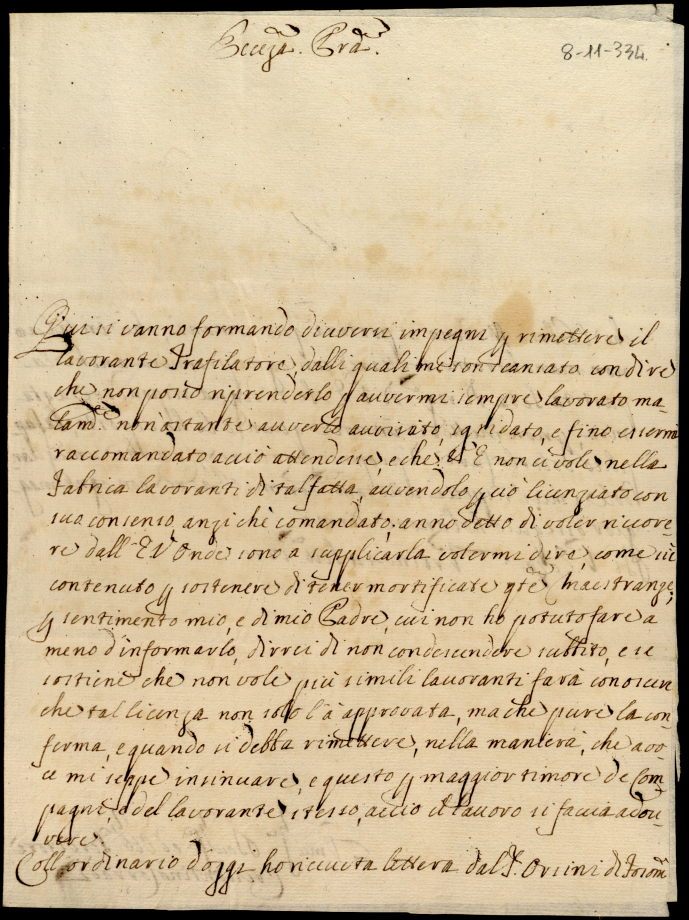 Eccza. Prâ.
8-11-334.
Qui si vanno formando diuversi impegni p rimettere il
lavorante Trafilatore, dalli quali me son scansato con dire
che non posso riprenderlo p auvermi sempre lavorato ma-
lamte. non ostante auverlo auvisato, sgridato, e fino essermi
raccomandato acciò attendesse, e che V E non ci vole nella
Fabrica lavoranti di tal fatta, auvendolo p ciò licenziato con
suo consenso, anzi chè comandato; anno detto di voler ricove-
re dall' E V Onde sono a supplicarla volermi dire, come sij
contenuto p sostenere di tener mortificate qte Maestranze;
p sentimento mio, e di mio Padre, cui non ho potuto fare a
meno d'informarlo, dirrei di non condescendere subbito, e se
sostiene che non vole più simili lavoranti farà conoscere
che tal licenza non solo l'à approvata, ma che pure la con-
ferma, e quando si debba rimettere, nella manierà, che a vo-
ce mi seppe insinuare, e questo p maggior timore de Com-
pagni, e del lavorante stesso, acciò il lauoro si faccia a dou-
vere.
Coll'ordinario d'oggi ho riceuuta lettera dal Sr. Orsini di